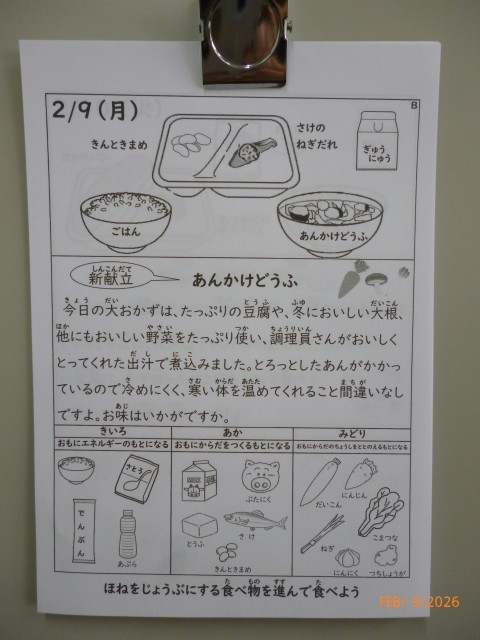 2/9(月)
B
きんときまめ
さけの
ねぎだれ
ぎゅう
にゅう
ごはん
あんかけどうふ
新献立
あんかけどうふ
今日の大おかずは、たっぷりの豆腐や、冬においしい大根、
他にもおいしい野菜をたっぷり使い、調理員さんがおいしく
とってくれた出汁で煮込みました。とろっとしたあんがかかっ
ているので冷めにくく、寒い体を温めてくれること間違いなし
ですよ。お味はいかがですか。
きいろ
おもにエネルギーのもとになる
さとう
でんぷん
あぶら
あか
おもにからだをつくるもとになる
ぶたにく
とうふ
さけ
きんときまめ
みどり
おもにからだのちょうしをととのえるもとになる
だいこん
にんじん
こまつな
ねぎ
にんにく
つちしょうが
ほねをじょうぶにする食べ物を進んで食べよう
FEB/ 9/2026